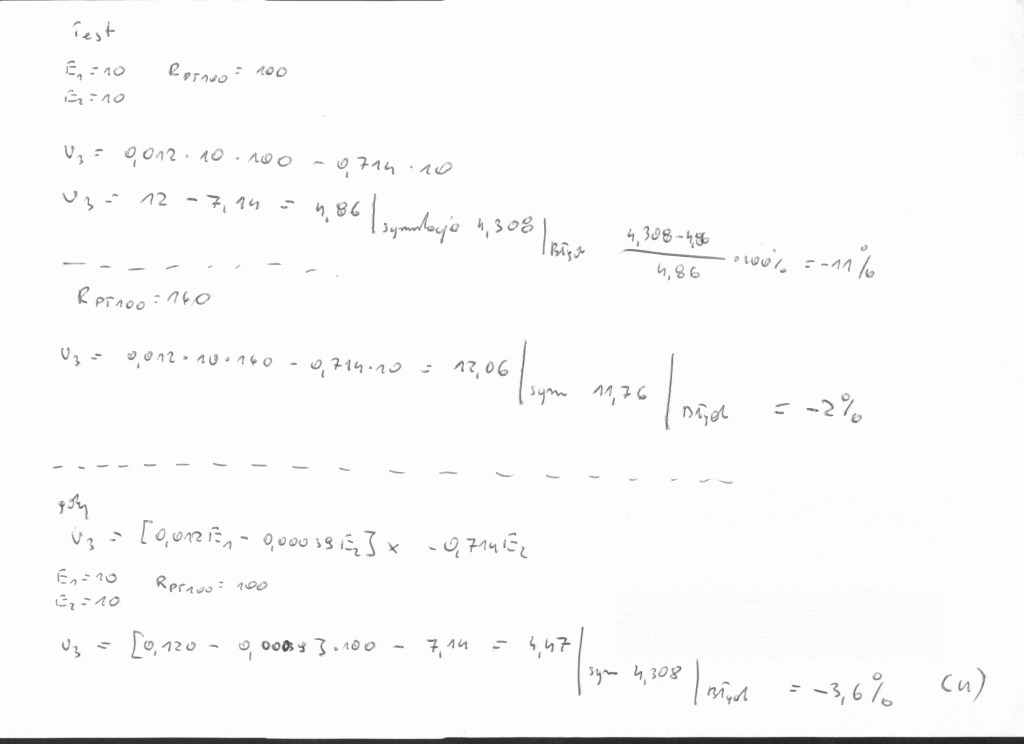 Test
E₁ = 10 R_PT100 = 100
E₂ = 10
U₃ = 0,012 · 10 · 100 - 0,714 · 10
U₃ = 12 - 7,14 = 4,86 | symulacja 4,308 | Błąd (4,308-4,86)/4,86 · 100% = -11%
R_PT100 = 160
U₃ = 0,012 · 10 · 160 - 0,714 · 10 = 12,06 | sym 11,76 | Błąd = -2%
gdy
U₃ = [0,012E₁ - 0,00039E₂] x - 0,714E₂
E₁ = 10 R_PT100 = 100
E₂ = 10
U₃ = [0,120 - 0,00039] · 100 - 7,14 = 4,47 | sym 4,308 | Błąd = -3,6% (u)